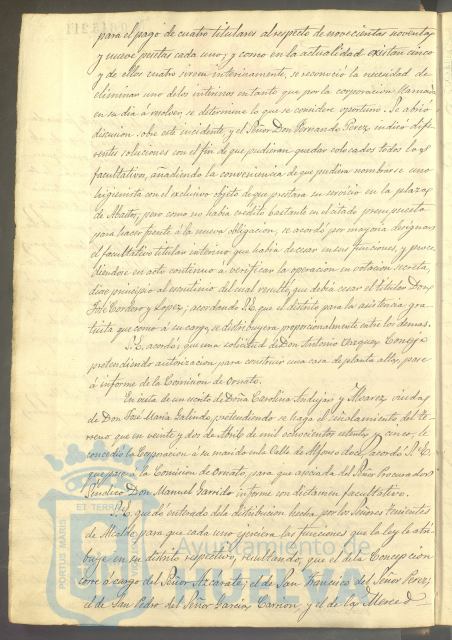 para el pago de cuatro titulares al respecto de novecientas noventa
y nueve pesetas cada uno; y como en la actualidad existan cinco
y de ellos cuatro sirven interinamente, se reconoció la necesidad de
eliminar uno de los interinos en tanto que por la corporacion llamada
en su dia á resolver, se determine lo que se considere oportuno. Se abrió
discusion sobre este incidente, y el Señor Don Fernando Perez, indicó dife-
rentes soluciones con el fin de que pudieran quedar colocados todos los
facultativos, añadiendo la conveniencia de que pudiera nombrarse uno
higienista con el exclusivo objeto de que prestara su servicio en la plaza
de Abastos, pero como no habia crédito bastante en el citado presupuesto
para hacer frente á la nueva obligacion, se acordó por mayoria designar
el facultativo titular interino que habia de cesar en sus funciones, y proce-
diendose en acto continuo á verificar la operacion en votacion secreta,
dióse principio al escrutinio del cual resultó, que debia cesar el titular Don
José Cordero y Lopez; acordando S.E. que el distrito para la asistencia gra-
tuita que corria á su cargo, se distribuyera proporcionalmente entre los demas.
S.E. acordó; que una solicitud de Don Antonio Vazquez Conejo
pretendiendo autorizacion para construir una casa de planta alta, pase
á informe de la Comision de Ornato.
En vista de un escrito de Doña Carolina y Alvarez viuda
de Don José Maria Galindo, pretendiendo se haga el señalamiento del te-
rreno que en veinte y dos de Abril de mil ochocientos setenta y cinco, le
concedio la Corporacion á su marido en la Calle de Alfonso doce, acordó S.E.
que pase á la Comision de Ornato, para que asociada del Señor Procurador
Síndico Don Manuel Garrido informe con dictamen facultativo.
S.E. quedó enterado de la distribucion hecha por los Señores Tenientes
de Alcalde, para que cada uno ejerciera las funciones que la ley le atri-
buye en su distrito respectivo, resultando, que el de la Concepcion
corre á cargo del Señor Azcarate; el de San Francisco del Señor Perez;
el de San Pedro del Señor Garcia Carrion, y el de la Merced
PORTUS MARIS ET TERRAE
Ayuntamiento de
HUELVA